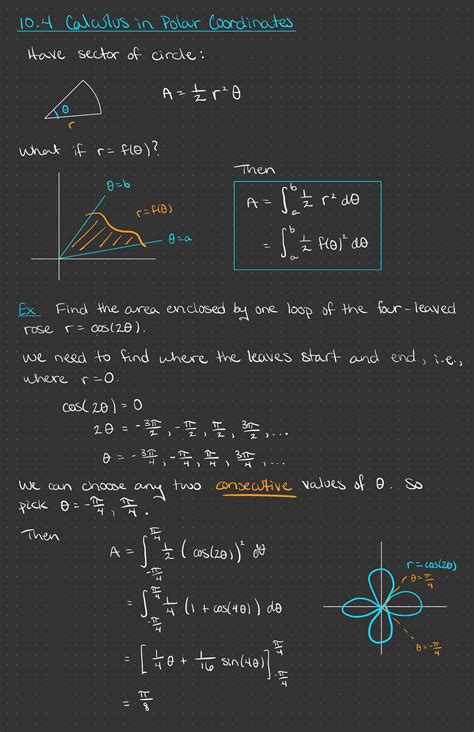 10.4 Calculus in Polar Coordinates
Have sector of circle:
θ
r
A = 1/2 r² θ
What if r = f(θ)?
θ=b
r=f(θ)
θ=a
Then
A = ∫_a^b 1/2 r² dθ
= ∫_a^b 1/2 f(θ)² dθ
Ex Find the area enclosed by one loop of the four-leaved
rose r = cos(2θ).
We need to find where the leaves start and end, i.e.,
where r=0.
cos(2θ) = 0
2θ = -3π/2, -π/2, π/2, 3π/2, ...
θ = -3π/4, -π/4, π/4, 3π/4, ...
We can choose any two consecutive values of θ. So
pick θ = -π/4, π/4.
Then
A = ∫_{-π/4}^{π/4} 1/2 (cos(2θ))² dθ
= ∫_{-π/4}^{π/4} 1/4 (1 + cos(4θ)) dθ
= [1/4 θ + 1/16 sin(4θ)]_{-π/4}^{π/4}
= π/8
r = cos(2θ)
θ = π/4
θ = -π/4